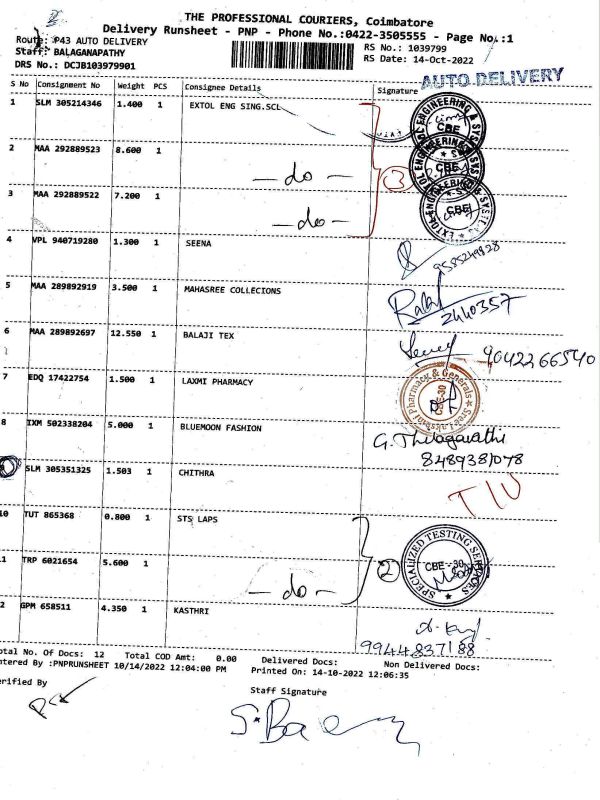 THE PROFESSIONAL COURIERS, Coimbatore
Delivery Runsheet - PNP - Phone No.:0422-3505555 - Page No.:1
Route: P43 AUTO DELIVERY
Staff: BALAGANAPATHY
DRS No.: DCJB103979901
RS No.: 1039799
RS Date: 14-Oct-2022
AUTO DELIVERY
S No Consignment No Weight PCS Consignee Details Signature
1 SLM 305214346 1.400 1 EXTOL ENG SING.SCL
2 MAA 292889523 8.600 1 - do -
3 MAA 292889522 7.200 1 - do -
3
CBE
CBE
CBE
4 VPL 940719280 1.300 1 SEENA
5 MAA 289892919 3.500 1 MAHASREE COLLECIONS
2440357
6 MAA 289892697 12.550 1 BALAJI TEX
9042266540
7 EDQ 17422754 1.500 1 LAXMI PHARMACY
Sree Lakshmi Pharmacy & Generals
CBE-30
8 IXM 502338204 5.000 1 BLUEMOON FASHION
G. Thilagavathi
8489381078
SLM 305351325 1.503 1 CHITHRA
10 TUT 865368 0.800 1 STS LAPS
11 TRP 6021654 5.600 1 - do -
2
SPECIALIZED TESTING SERVICES
CBE-30
12 GPM 658511 4.350 1 KASTHRI
9944837188
Total No. Of Docs: 12 Total COD Amt: 0.00 Delivered Docs: Non Delivered Docs:
Entered By :PNPRUNSHEET 10/14/2022 12:04:00 PM Printed On: 14-10-2022 12:06:35
Verified By
Staff Signature